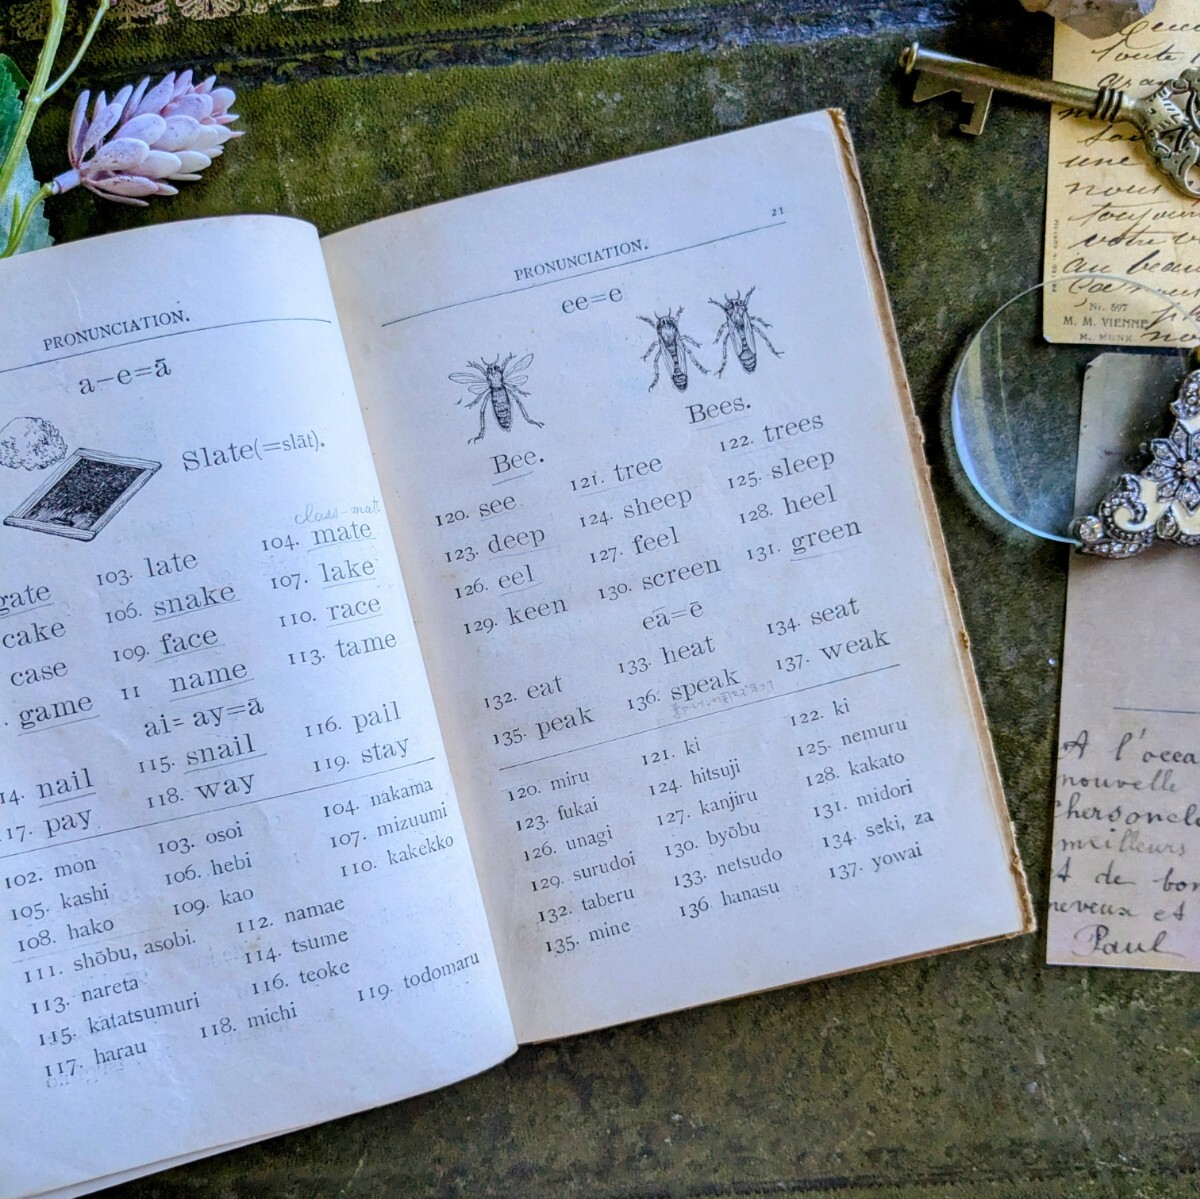 PRONUNCIATION.
a-e=ā
Slate(=slāt).
class-mate
gate 103. late 104. mate
cake 106. snake 107. lake
case 109. face 110. race
game 11 name 113. tame
ai= ay=ā
14. nail 115. snail 116. pail
17. pay 118. way 119. stay
102. mon 103. osoi 104. nakama
105. kashi 106. hebi 107. mizuumi
108. hako 109. kao 110. kakekko
111. shōbu, asobi. 112. namae
113. nareta 114. tsume
115. katatsumuri 116. teoke
117. harau 118. michi 119. todomaru
21
PRONUNCIATION.
ee=e
Bee. Bees.
120. see 121. tree 122. trees
123. deep 124. sheep 125. sleep
126. eel 127. feel 128. heel
129. keen 130. screen 131. green
eā=ē
132. eat 133. heat 134. seat
135. peak 136. speak 137. weak
120. miru 121. ki 122. ki
123. fukai 124. hitsuji 125. nemuru
126. unagi 127. kanjiru 128. kakato
129. surudoi 130. byōbu 131. midori
132. taberu 133. netsudo 134. seki, za
135. mine 136 hanasu 137. yowai
toute
une
nous
toujours
votre
au beau
Nr. 597
M. M. VIENNE
M. MUNK
A l'occa
nouvelle
meilleurs
et de bon
neveux et
Paul